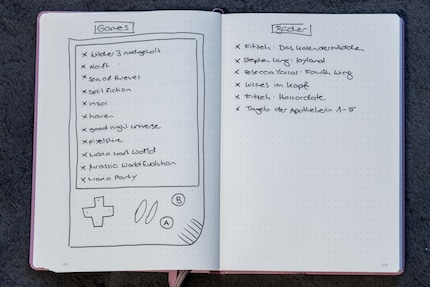 Games
x Witcher 3 nochmals
x Sea of thieves
x Split fiction
x inzoi
x haven
x good night universe
x pixelshire
x Mario Kart World
x Jurassic World Evolution
x Mario Party
B
A
Bücher
x Fitzek: Das Kalendermädchen
x Stephen King: Joyland
x Rebecca Yarros: Fourth Wing
x Wildes im Kopf
x Fitzek: Horrordate
x Tagebücher der Apothekerin 1-15